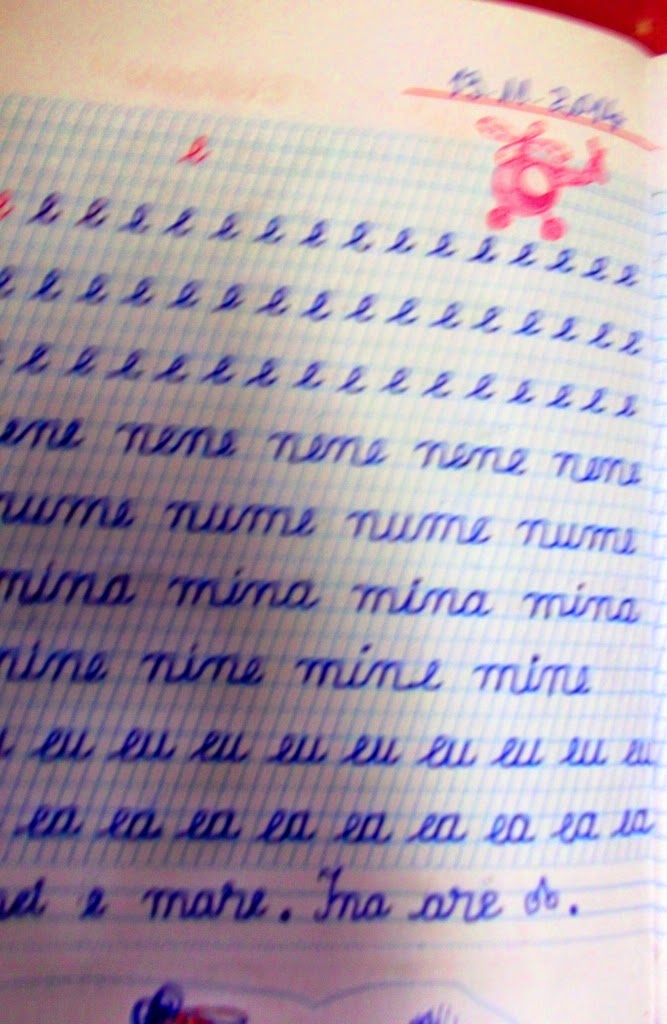 13.11.2014
e
e e e e e e e e e e e e e e e
e e e e e e e e e e e e e e e
e e e e e e e e e e e e e e
nene nene nene nene
nume nume nume
mina mina mina
nine mine mine
eu eu eu eu eu eu eu eu eu
ea ea ea ea ea ea ea ea ea
e mare. Ina are